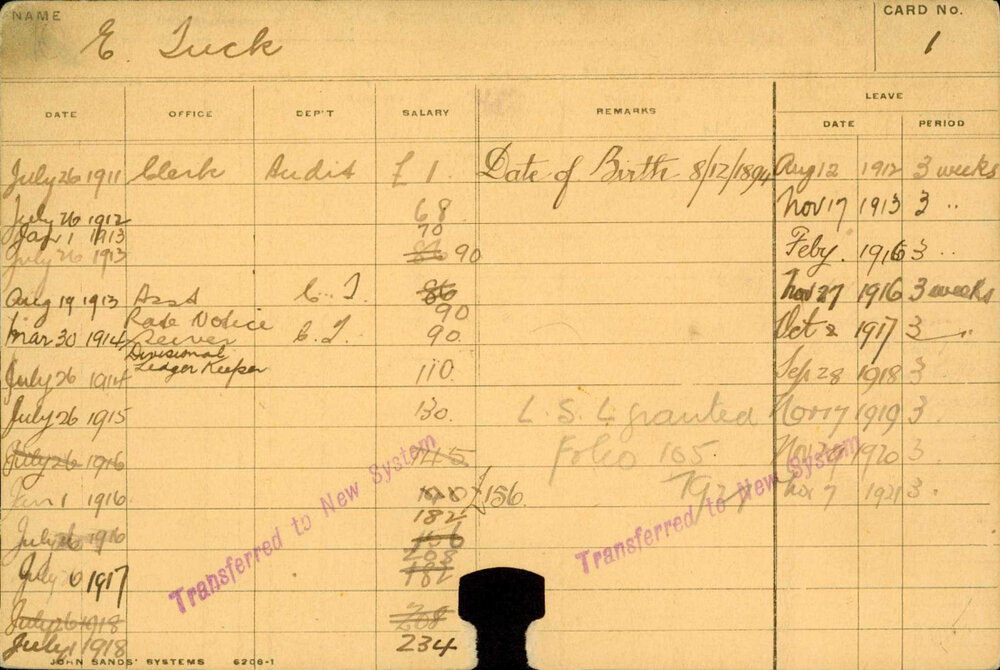 NAME
E. Tuck
CARD No.
1
DATE OFFICE DEP'T SALARY REMARKS LEAVE
DATE PERIOD
July 26 1911 Clerk Audit £ 1. Date of Birth 8/12/1894 Aug 12 1912 3 weeks
July 26 1912 68. Nov 17 1913 3 "
Jan 1 1913 70
July 26 1913 86 90 Feby. 1916 3 "
Aug 19 1913 Asst C. T. 86 Nov 27 1916 3 weeks
90
Mar 30 1914 Rate Notice C. T. 90. Oct 2 1917 3 "
Divisional
July 26 1914 Ledger Keeper 110. Sep 28 1918 3
July 26 1915 130. L. S. L granted Nov 17 1919 3
July 26 1916 145 Folio 165. 1920 3
Jan 1 1916 £156. 1927 Nov 7 1921 3.
182
July 26 1916 156
208
July 1917 182
July 26 1918 208
July 1 1918 234
Transferred to New System
Transferred to New System
JOHN SANDS' SYSTEMS 6206-1